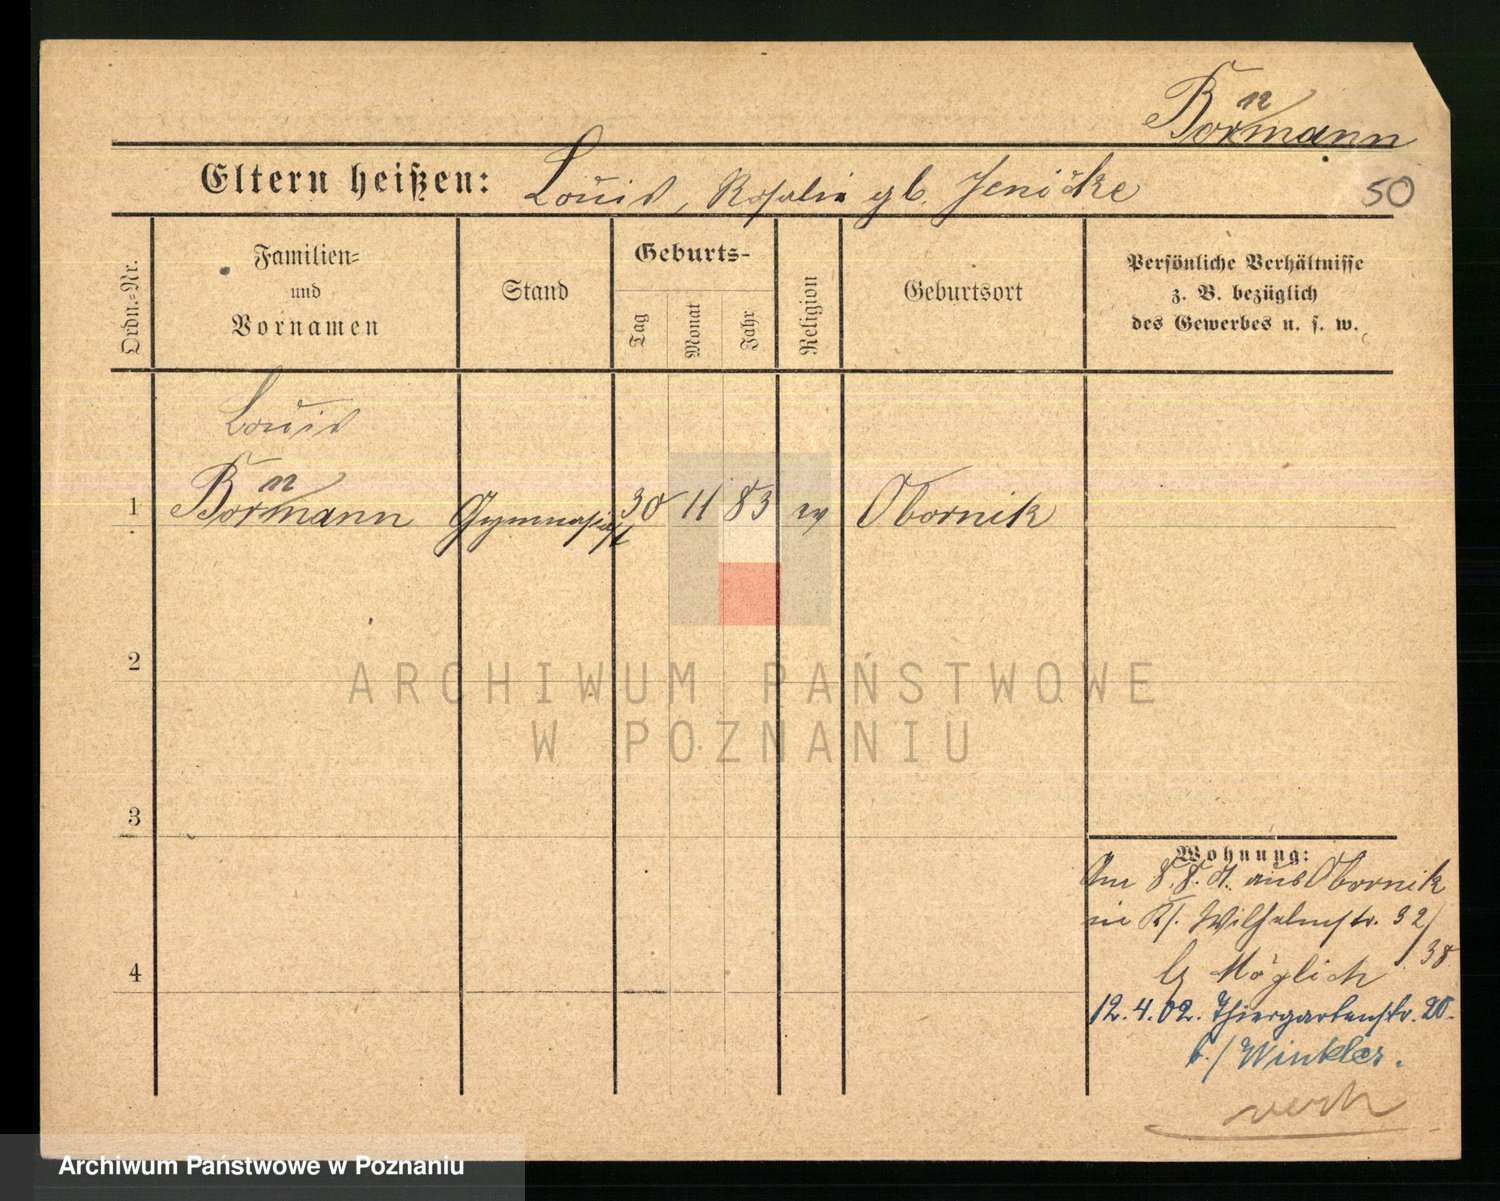 Bormann
n
Eltern heißen: Louis, Rosalie gb. Jenicke
50
Ordn.-Nr.
Familien-
und
Vornamen
Stand
Geburts-
Tag
Monat
Jahr
Religion
Geburtsort
Persönliche Verhältnisse
z. B. bezüglich
des Gewerbes u. s. w.
Louis
n
1 Bormann Gymnasiast 30 11 83 ev Obornik
2
ARCHIWUM PAŃSTWOWE
W POZNANIU
3
Wohnung:
aus Obornik
Wilhelmstr. 32/
38
4
b/ Möglich
12.4.02. Thiergartenstr. 20.
b./ Winkler.
Archiwum Państwowe w Poznaniu